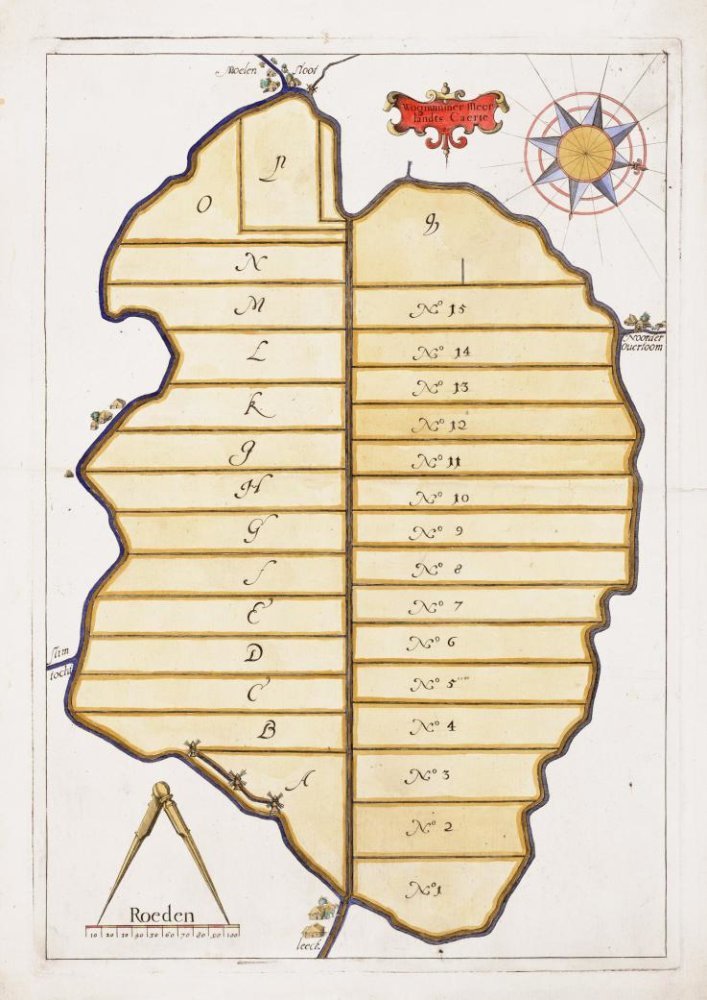 Moelen Sloot
Wogmummer Meer
landts Caerte
P
O
N
M
L
K
H
G
E
D
C
B
A
No 15
No 14
No 13
No 12
No 11
No 10
No 9
No 8
No 7
No 6
No 5
No 4
No 3
No 2
No 1
Noorder
Ouerloom
tocht
leeck
Roeden
10 20 30 40 50 60 70 80 90 100